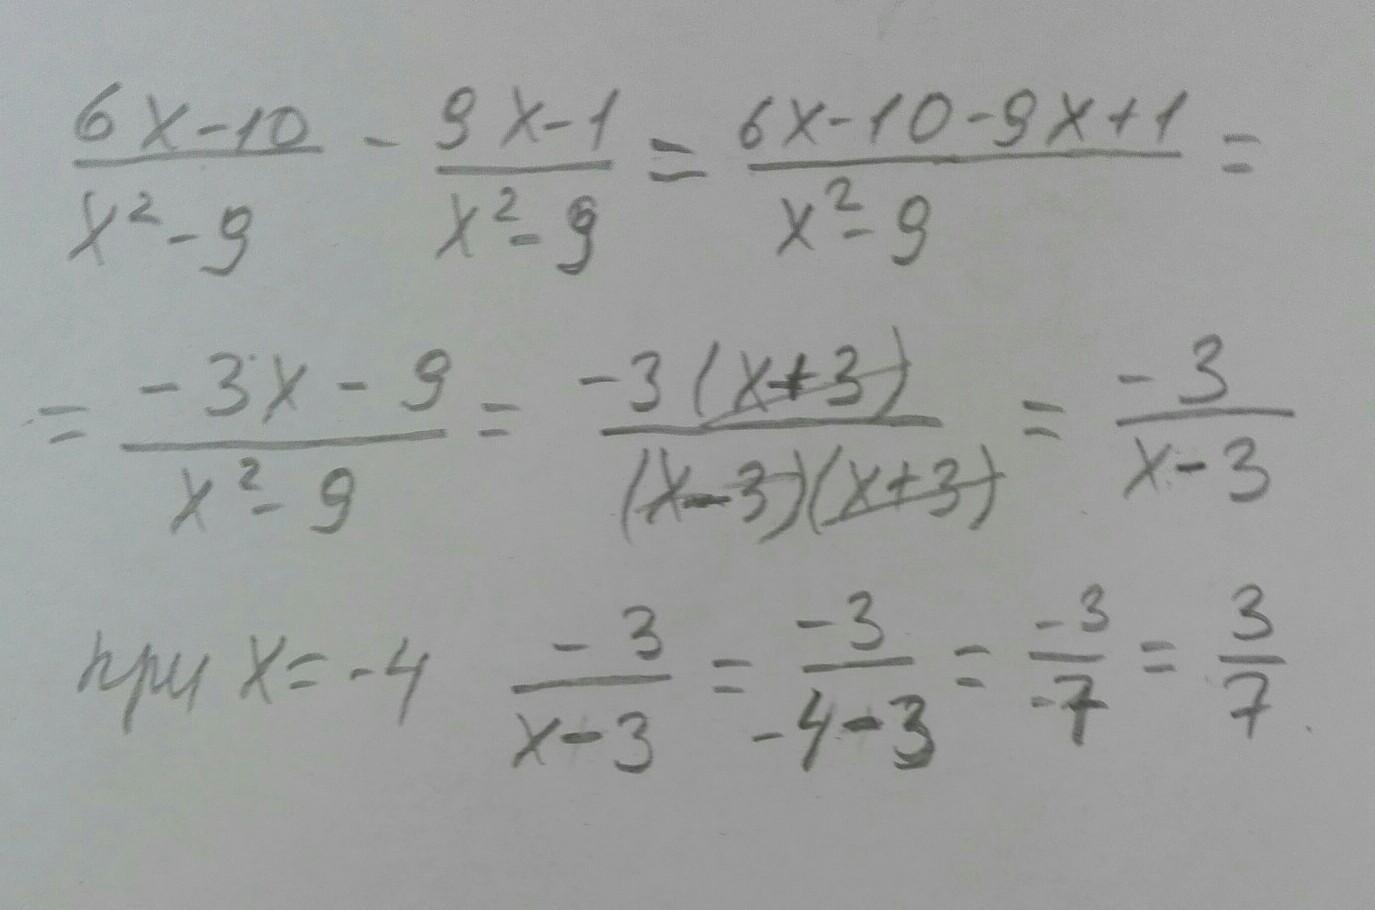 (6x-10)/(x²-9) - (9x-1)/(x²-9) = (6x-10-9x+1)/(x²-9) =
= (-3x-9)/(x²-9) = (-3(x+3))/((x-3)(x+3)) = (-3)/(x-3)
при x=-4 (-3)/(x-3) = (-3)/(-4-3) = (-3)/(-7) = 3/7.